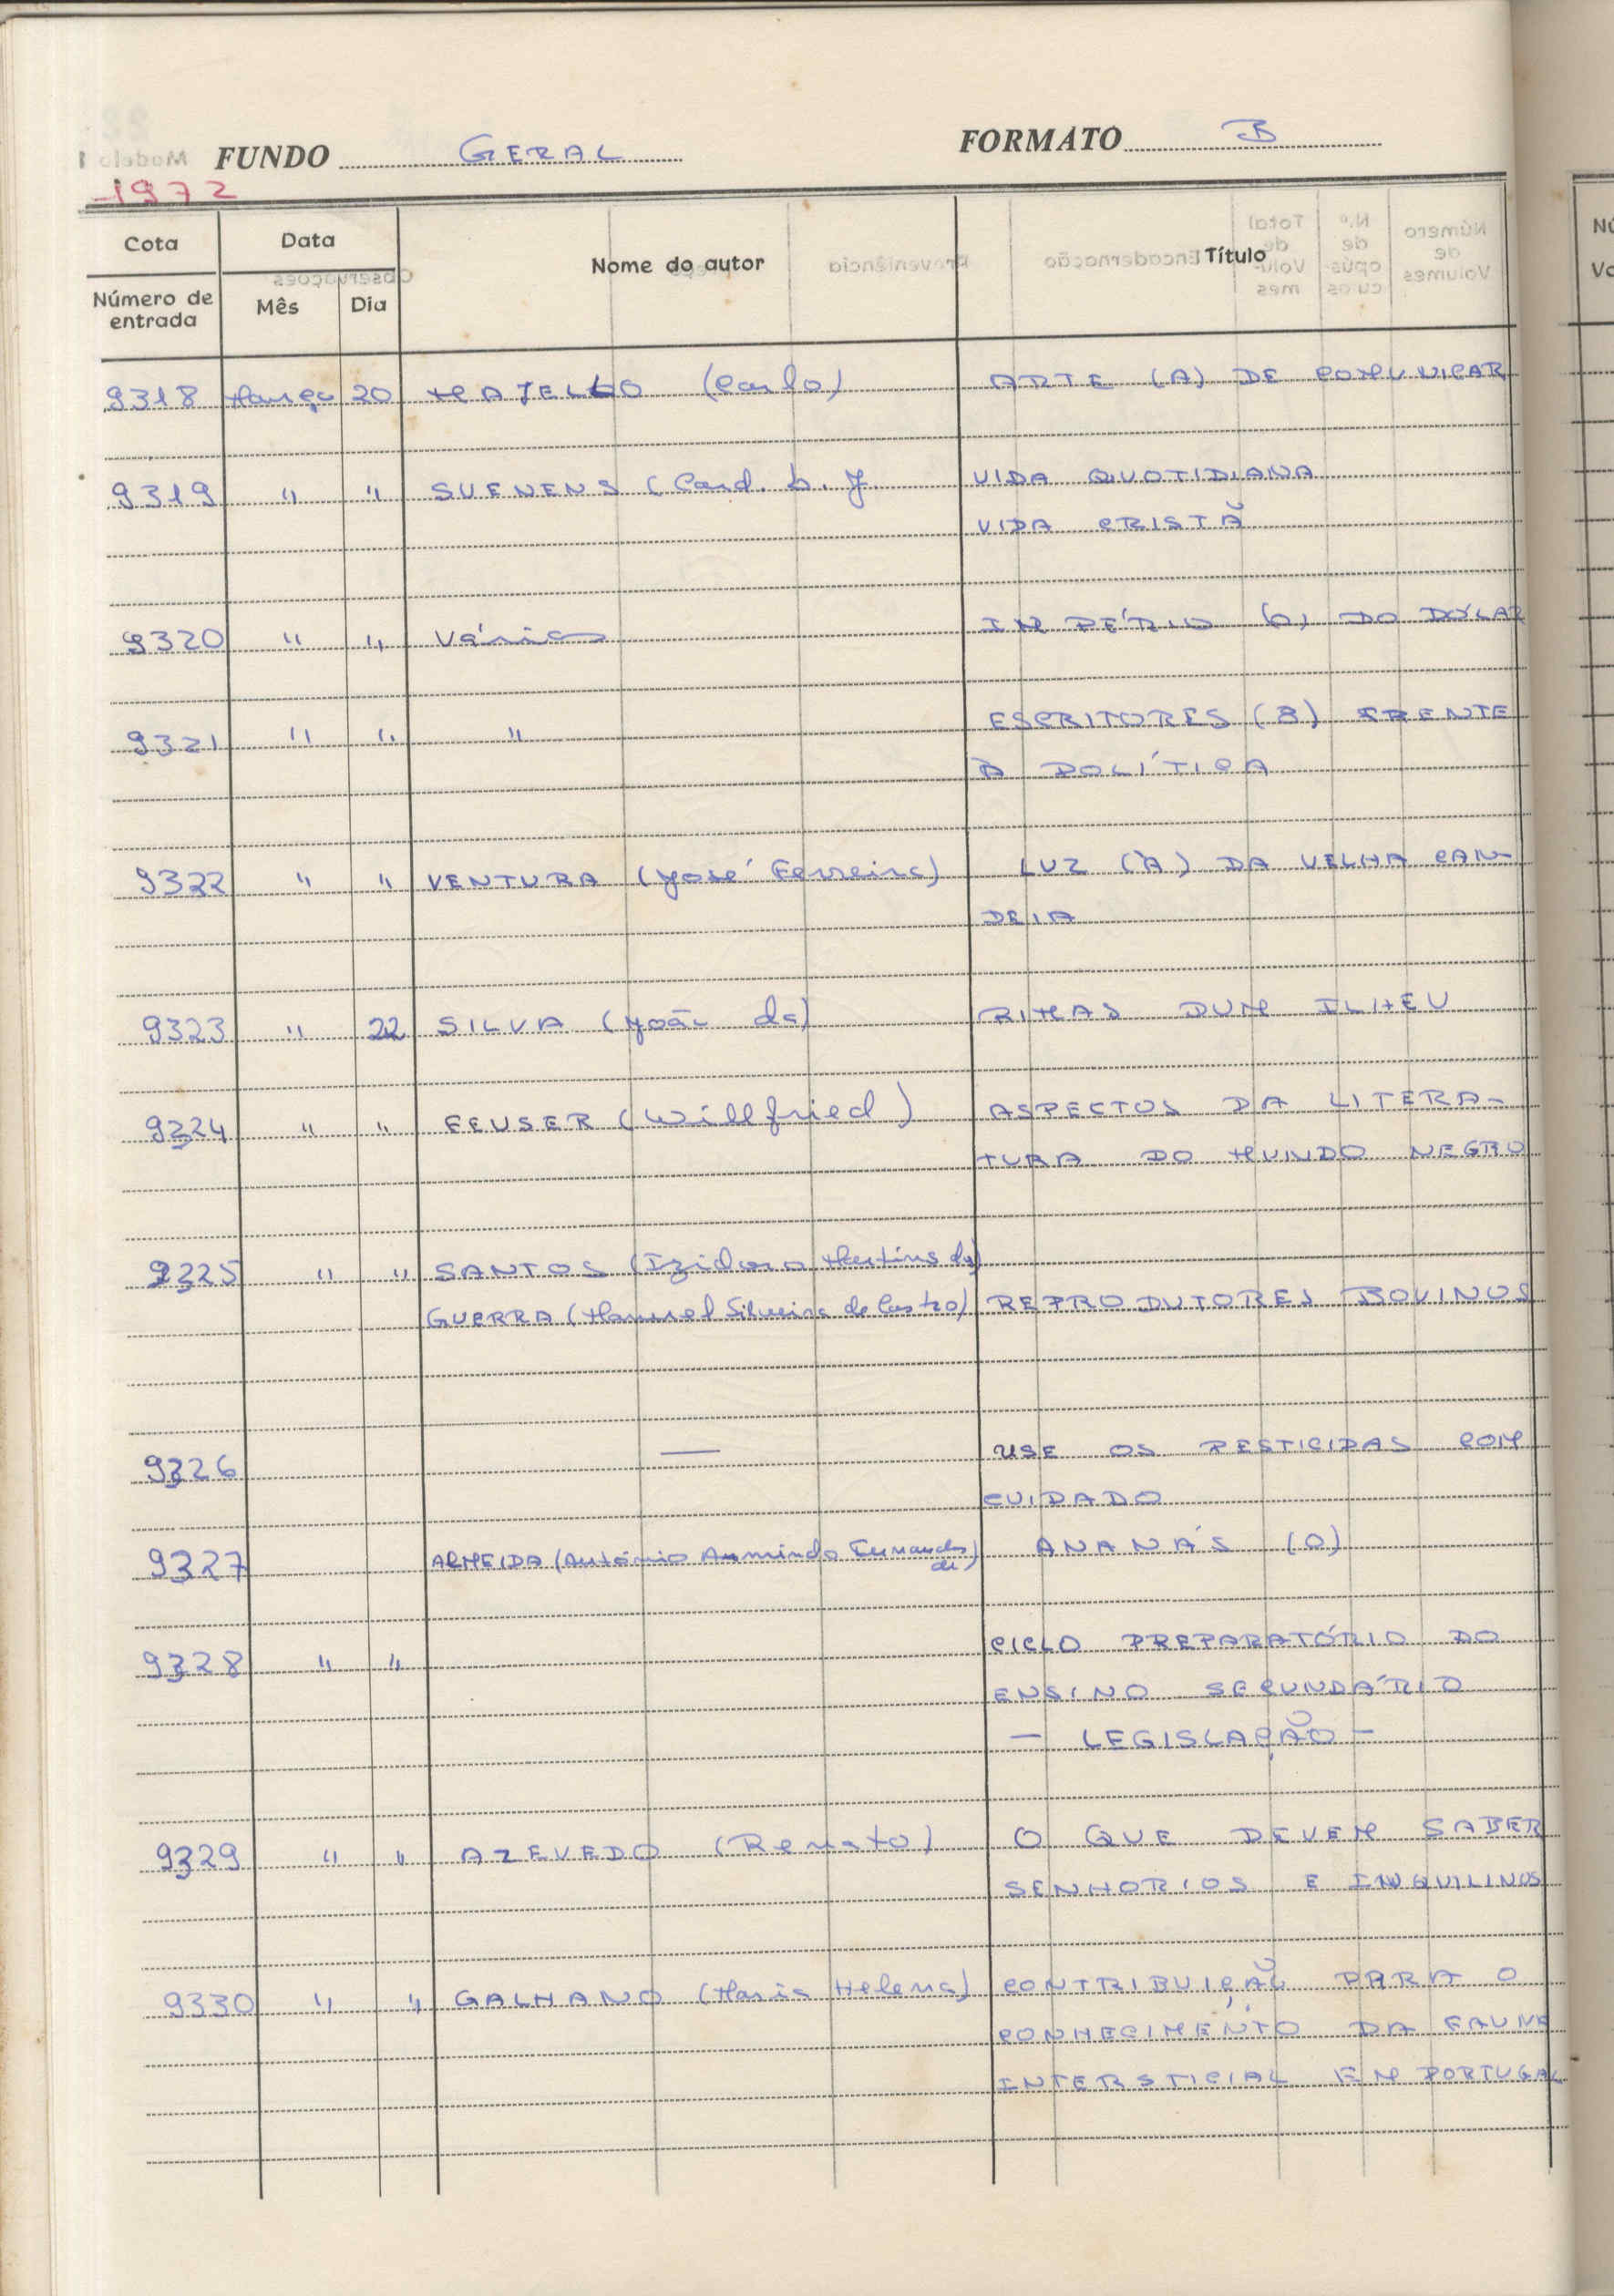 FUNDO GERAL FORMATO B
1972
Cota Data Nome do autor Título
Número de entrada Mês Dia
9318 Março 20 MAJELLO (Carlo) ARTE (A) DE COMUNICAR
9319 " " SUENENS (Card. L. J. VIDA QUOTIDIANA
VIDA CRISTÃ
9320 " " Vários IMPÉRIO (O) DO DÓLAR
9321 " " " ESCRITORES (8) FRENTE
À POLÍTICA
9322 " " VENTURA (José Ferreira) LUZ (À) DA VELHA CAN-
DEIA
9323 " 22 SILVA (João da) RIMAS DUM ILHEU
9324 " " FEUSER (Willfried) ASPECTOS DA LITERA-
TURA DO MUNDO NEGRO
9325 " " SANTOS (Izidoro Martins dos)
GUERRA (Manuel Silveira de Castro) REPRODUTORES BOVINOS
9326 — USE OS PESTICIDAS COM
CUIDADO
9327 ALMEIDA (António Armindo Fernandes de) ANANÁS (O)
9328 " " CICLO PREPARATÓRIO DO
ENSINO SECUNDÁRIO
— LEGISLAÇÃO —
9329 " " AZEVEDO (Renato) O QUE DEVEM SABER
SENHORIOS E INQUILINOS
9330 " " GALHANO (Maria Helena) CONTRIBUIÇÃO PARA O
CONHECIMENTO DA FAUNA
INTERSTICIAL EM PORTUGAL